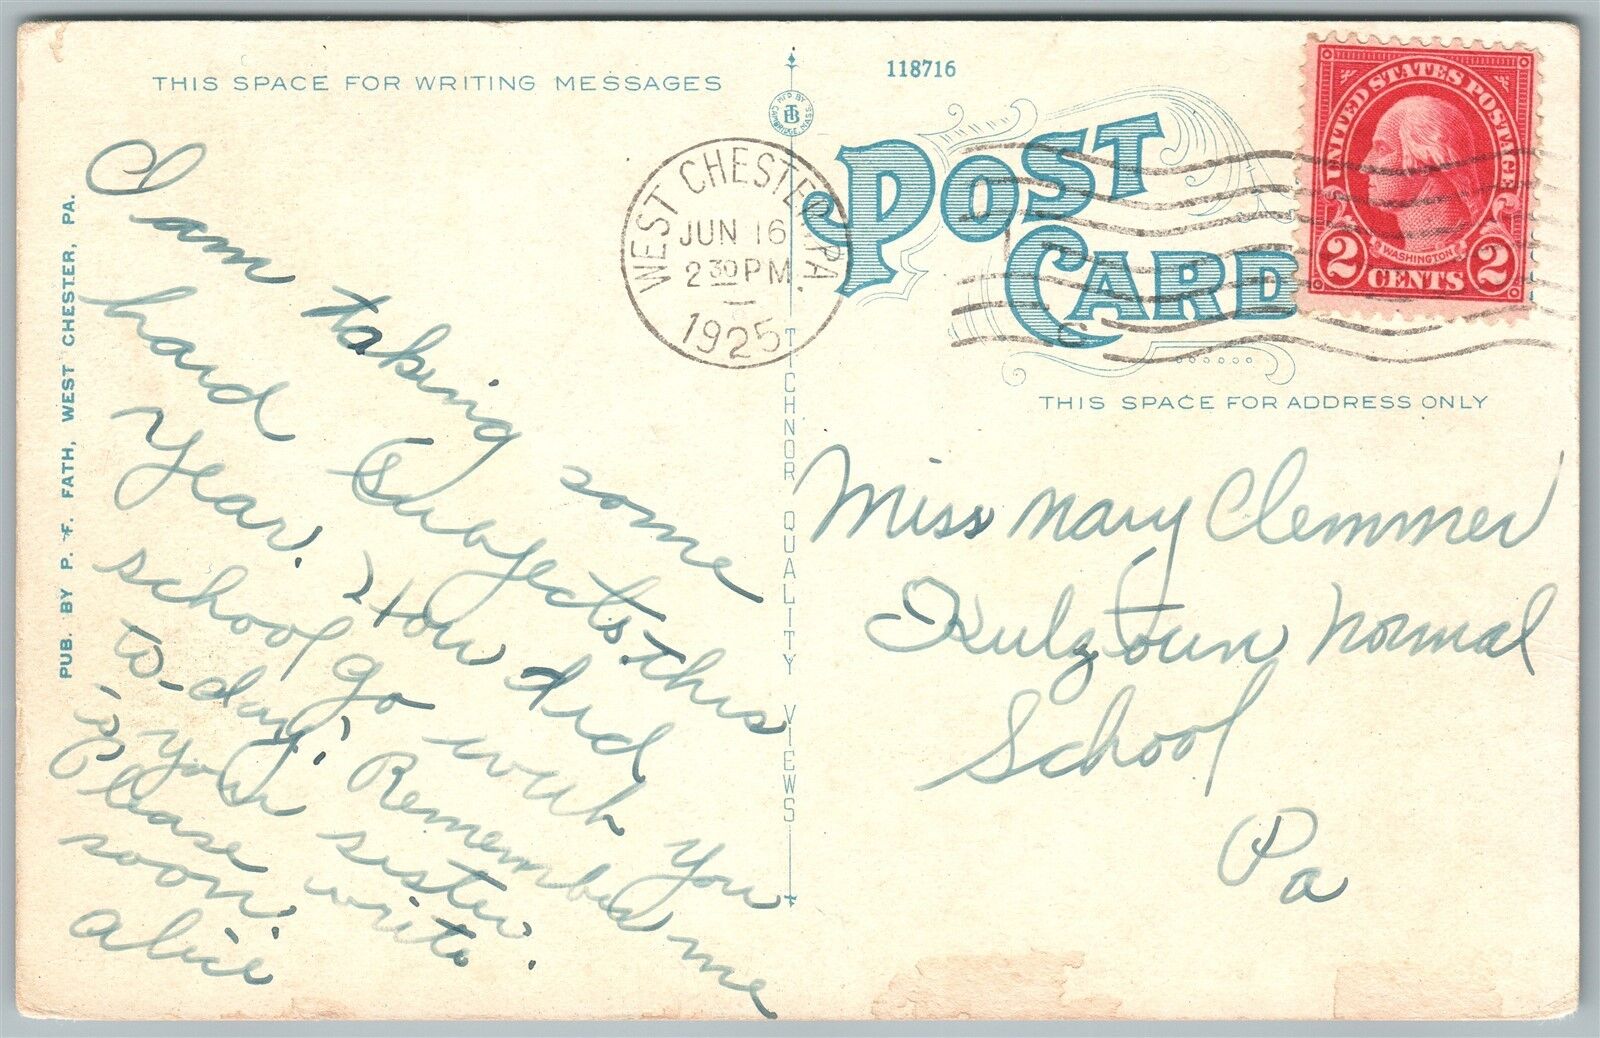 THIS SPACE FOR WRITING MESSAGES
118716
MF'D BY
TB
CAMBRIDGE, MASS.
POST CARD
UNITED STATES POSTAGE
WASHINGTON
2 CENTS 2
WEST CHESTER, PA.
JUN 16
2 30 PM
1925
C
THIS SPACE FOR ADDRESS ONLY
PUB. BY P. F. FATH, WEST CHESTER, PA.
TICHNOR QUALITY VIEWS
I am taking some
hard subjects this
year. How did
school go with you
to-day? Remember me
to your sister.
Please write
soon.
Alice
Miss Mary Clemmer
Kutztown Normal
School
Pa